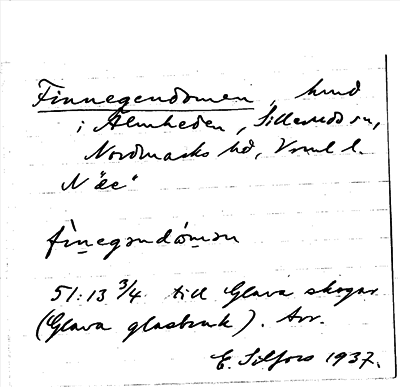 Finnegendomen, hmd
i Älmheden, Sillerud sn,
Nordmarks hd, Vrml l.
N "äe"
fìnegəndómən
51:13 3/4 till Glava skogar
(Glava glasbruk). Arr.
E. Silfors 1937.